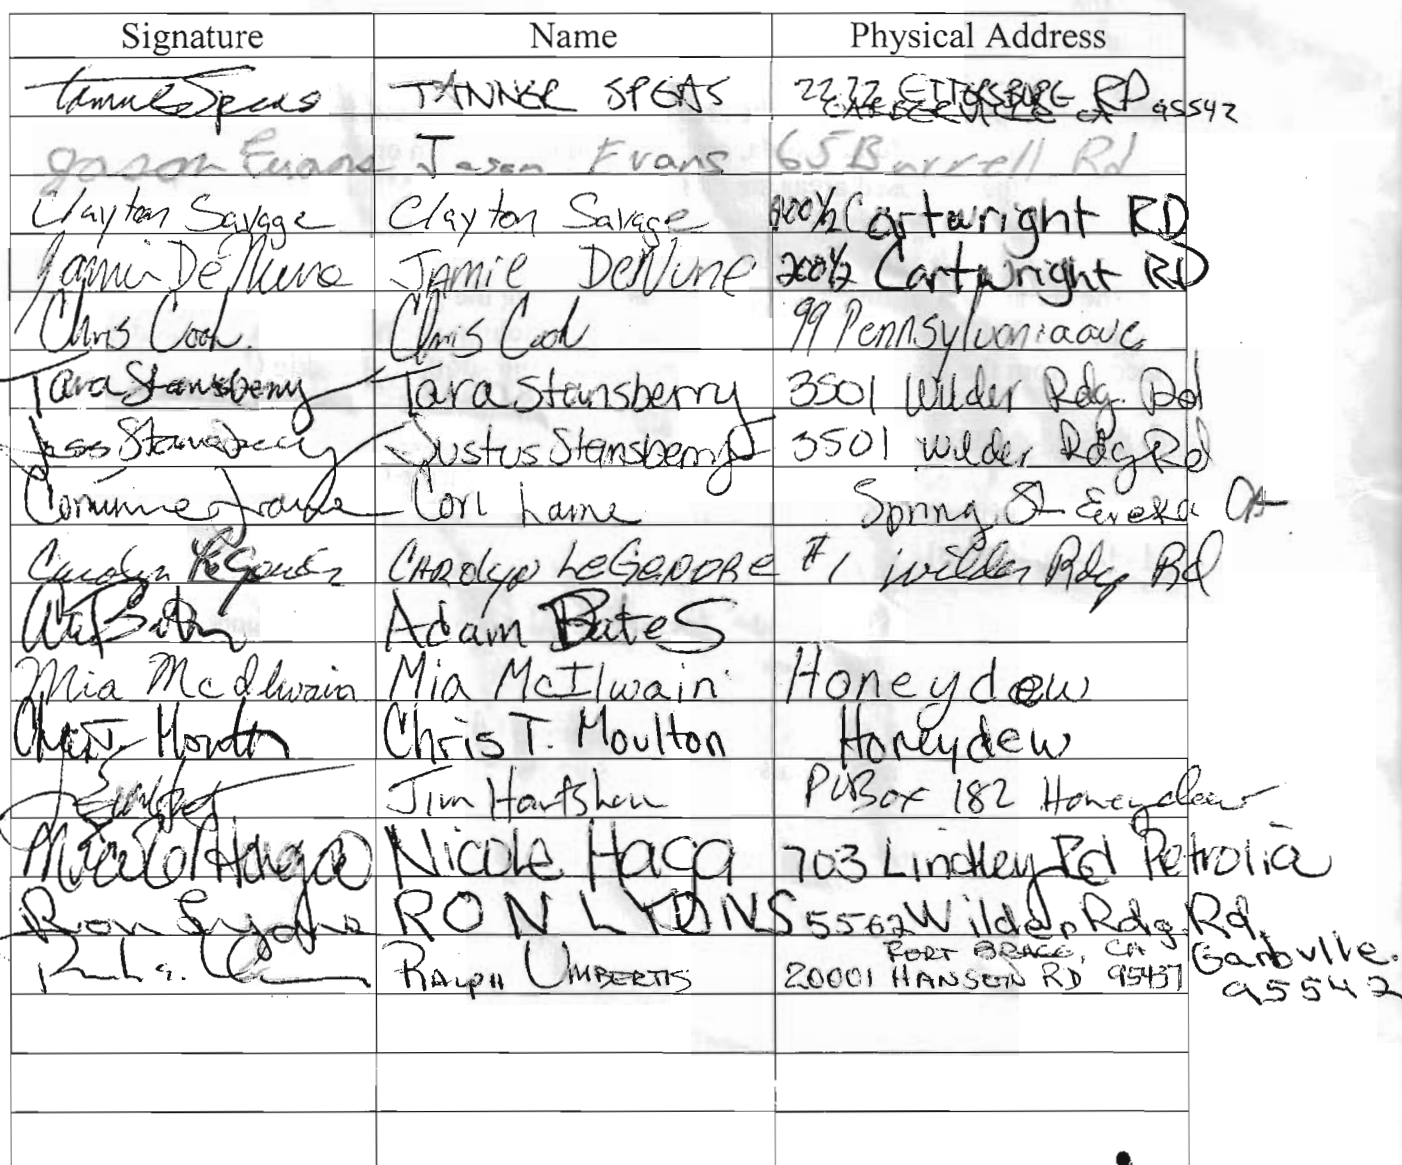 Signature Name Physical Address
Tanner Speas TANNER SPEAS 2272 ETTERSBURG RD
GARBERVILLE CA 95542
Jason Evans Jason Evans 65 Burrell Rd
Clayton Savage Clayton Savage Cartwright RD
Jamie DeNune Jamie DeNune 200½ Cartwright RD
Chris Cook Chris Cook 99 Pennsylvania ave
Tara Stansberry Tara Stansberry 3501 Wilder Rdg. Rd
Stansberry Justus Stansberry 3501 Wilder Rdg Rd
Corinne Cori Spring St Eureka CA
Carolyn LeGendre CAROLYN LEGENDRE #1 wilder Rdg Rd
Adam Bates
Mia McIlwain Mia McIlwain Honeydew
Chris T. Moulton Chris T. Moulton Honeydew
Jim PO Box 182 Honeydew
Nicole Haga Nicole Haga 703 Lindley Rd Petrolia
Ron Lyons RON LYONS 5562 Wilder Rdg. Rd.
Garbville.
95542
FORT BRAGG, CA
RALPH UMBERTIS 20001 HANSON RD 95437